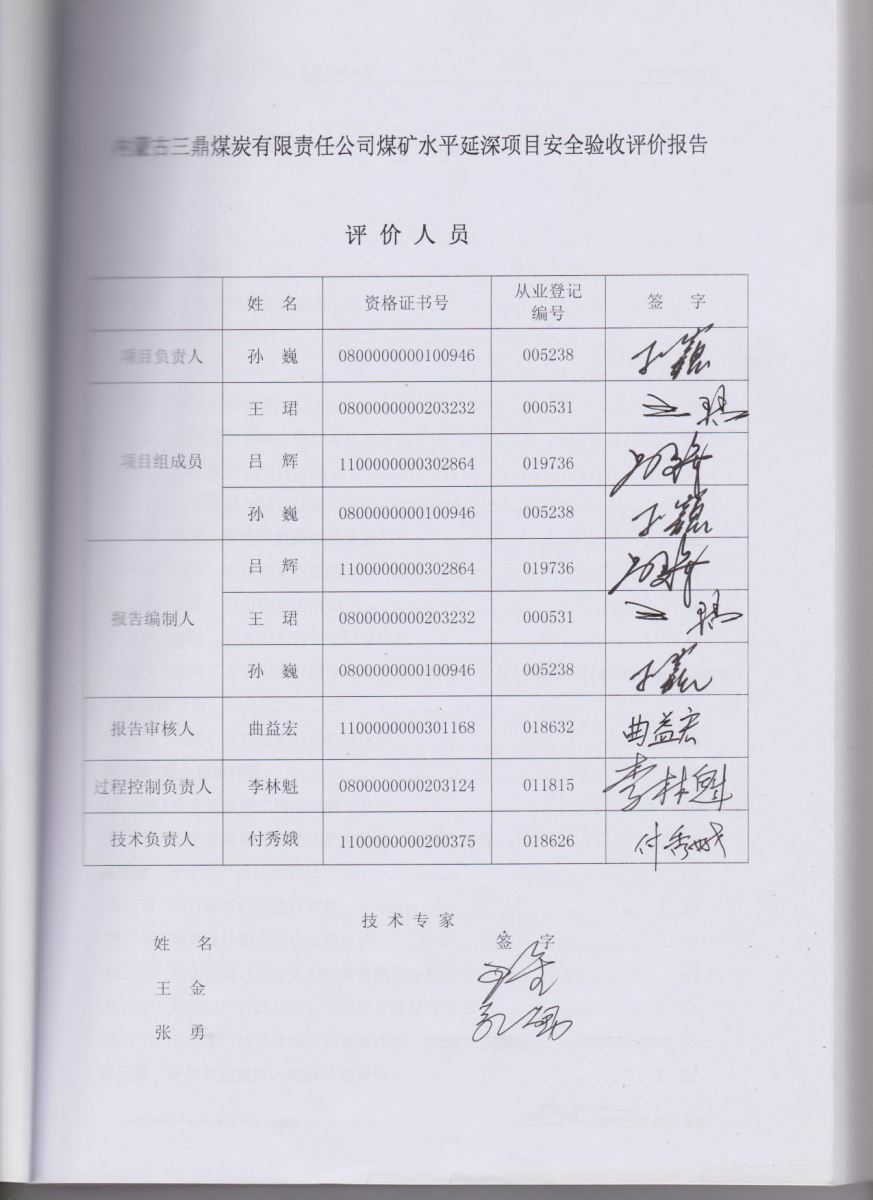 内蒙古三鼎煤炭有限责任公司煤矿水平延深项目安全验收评价报告
评 价 人 员
姓 名 资格证书号 从业登记编号 签 字
项目负责人 孙 巍 0800000000100946 005238 孙巍
项目组成员 王 珺 0800000000203232 000531 王珺
吕 辉 1100000000302864 019736 吕辉
孙 巍 0800000000100946 005238 孙巍
报告编制人 吕 辉 1100000000302864 019736 吕辉
王 珺 0800000000203232 000531 王珺
孙 巍 0800000000100946 005238 孙巍
报告审核人 曲益宏 1100000000301168 018632 曲益宏
过程控制负责人 李林魁 0800000000203124 011815 李林魁
技术负责人 付秀娥 1100000000200375 018626 付秀娥
技 术 专 家
姓 名 签 字
王 金 王金
张 勇 张勇